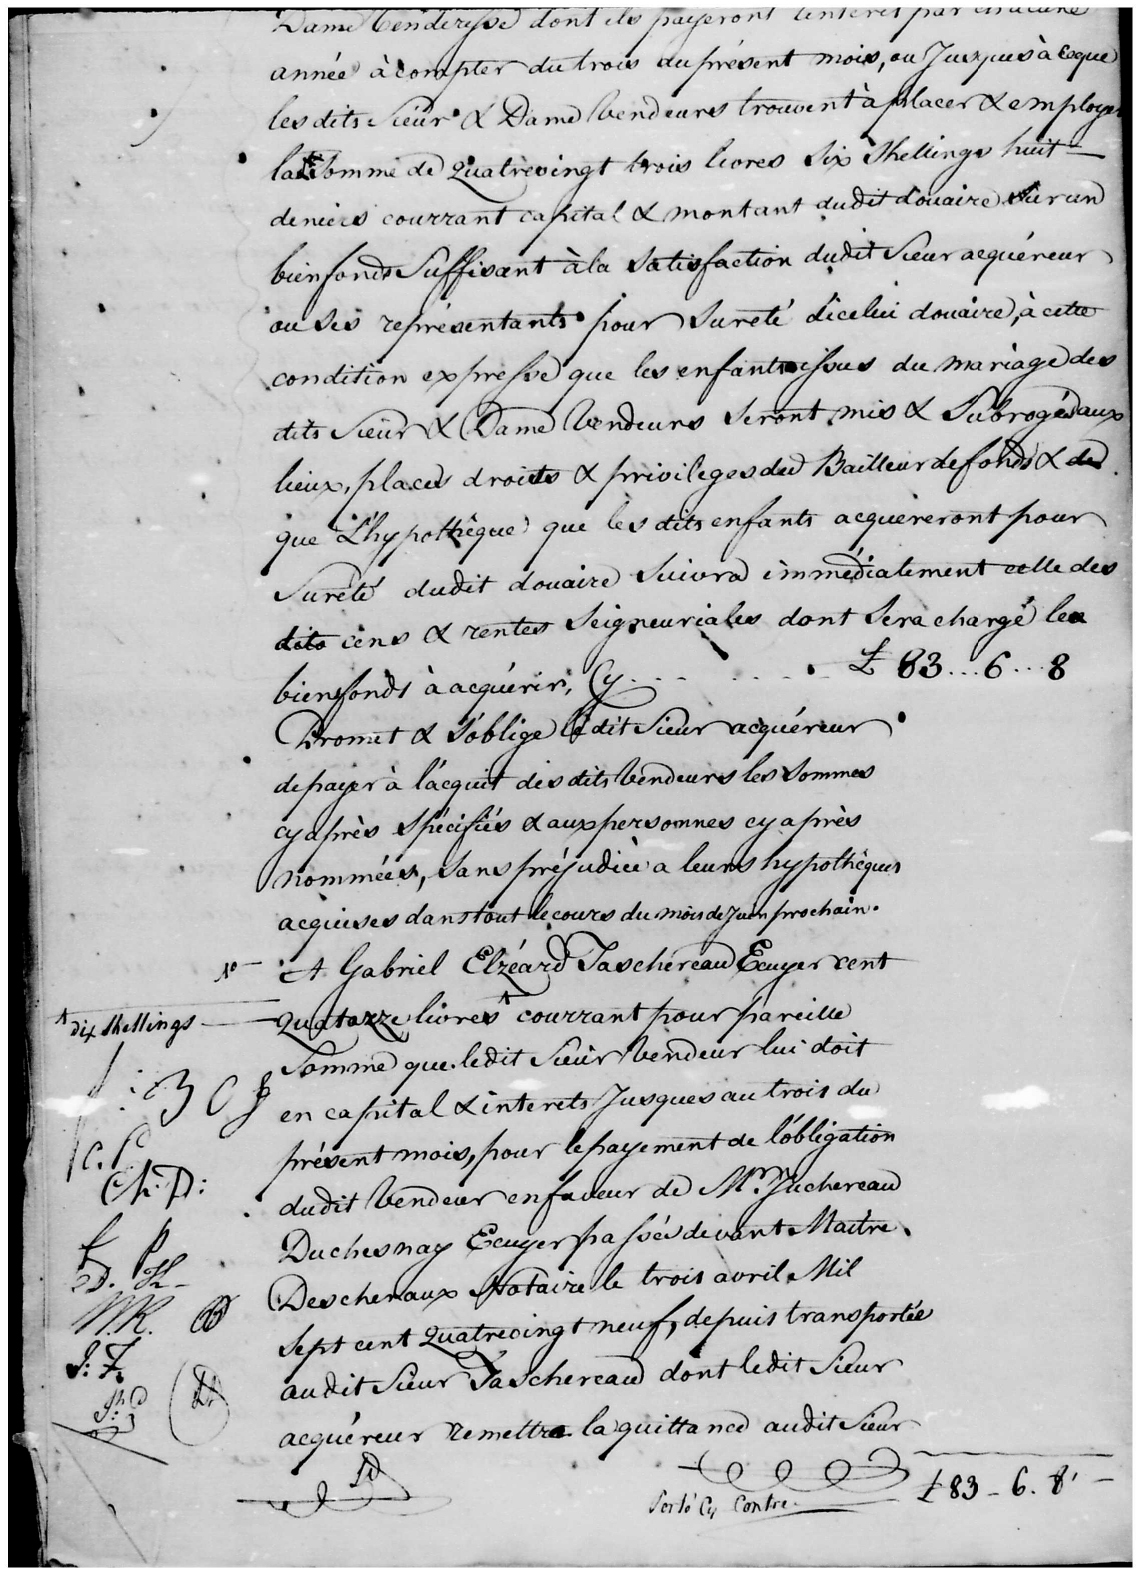 Dame Venderesse dont ils payeront l'interet par chacune
année à compter du trois du présent mois, ou Jusques à ceque
les dits Sieur & Dame Vendeurs trouvent à placer & employer
la Somme de Quatrevingt trois livres Six Shellings huit
deniers courrant capital & montant dudit douaire Sur un
bienfonds Suffisant à la Satisfaction dudit Sieur acquéreur
ou Ses représentants pour Sureté d'icelui douaire, à cette
condition expresse que les enfants issus du mariage des
dits Sieur & Dame Vendeurs Seront mis & Subrogés aux
lieux, places droits & privileges du Bailleur de fonds &
que L'hypothêque que les dits enfants acquereront pour
Sureté dudit douaire Suivra immédiatement celle des
dits cens & rentes Seigneuriales dont Sera chargé le
bienfonds à acquérir, Cy . . . . . . £ 83 ... 6 ... 8
Promet & S'oblige le dit Sieur acquéreur
de payer à l'acquit des dits Vendeurs les Sommes
cy après Spécifiés & aux personnes cy après
nommées, Sans préjudice a leurs hypothêques
acquises dans tout le cours du mois de Juin prochain.
1º A Gabriel Elzéard Taschereau Ecuyer cent
Quatorze livres courrant pour pareille
dix Shellings
Somme que ledit Sieur Vendeur lui doit
en capital & interets Jusques au trois du
présent mois, pour le payement de l'obligation
dudit Vendeur en faveur de Mr. Juchereau
Duchesnay Ecuyer passés devant Maitre
Deschenaux Notaire le trois avril Mil
Sept cent Quatrevingt neuf, depuis transportée
audit Sieur Taschereau dont ledit Sieur
acquéreur remettra la quittance audit Sieur
C. P.
Ch. D:
L P
D. K
W.R.
J: F.
Porté Cy Contre £ 83 - 6. 8